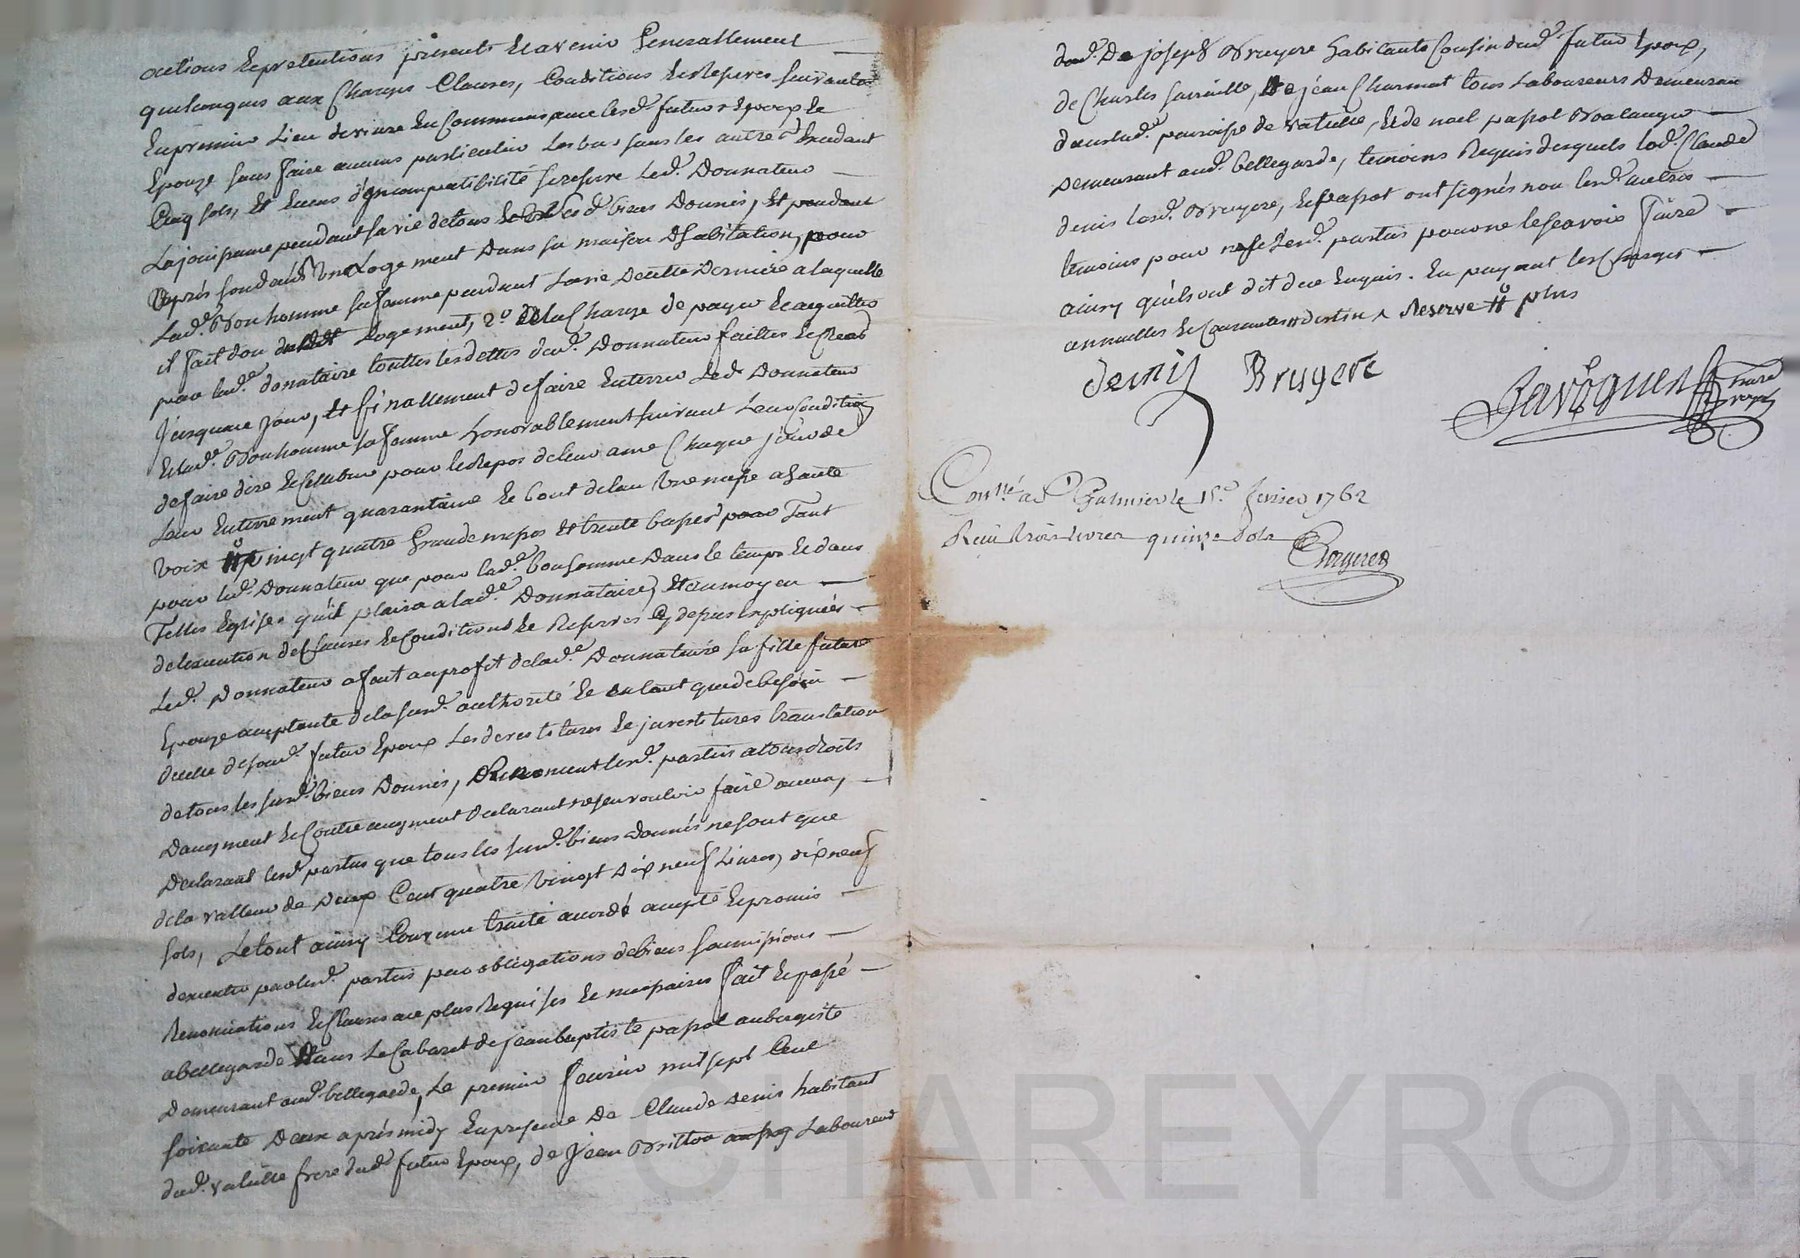 actions et pretentions presents et avenir Generallement
quelconques aux Charges Clauses, Conditions et Reserves suivantes
En premier Lieu de vivre En Commun avec lesd. futurs Epoux Et
Epouze sans faire aucun particulier Les uns sans les autres Pendant
Cinq sols, Et En cas d'Incompatibilité se reserve Led. Donnateur
La jouissance pendant sa vie de tous Lesd. biens Donnés, Et pendant
Après son deceds Une Logement Dans sa maison D'habitation, pour
Lad. Bonhomme sa femme pendant La vie De cette Derniere a laquelle
il fait don dudit Logement, 2° A La Charge de payer Et acquitter
par lad. donataire touttes les dettes dud. Donnateur faittes Et Créés
Jusqu'a ce jour, Et finallement de faire Enterrer Led. Donnateur
Et lad. Bonhomme sa femme honorablement suivant Leur Condition
de faire dire Et Celebrer pour le Repos de leur ame Chaque jour de
Leur Enterrement quarantaine Et bout de l'an Une messe a haute
voix vingt quatre Grandes messes Et trente basses pour Tant
pour led. Donnateur que pour lad. bonhomme Dans le temps Et dans
Telles Eglises qu'il plaira a lad. Donnataire, Et au moyen
de l'execution des Clauses Et Conditions Et Reserves Cy dessus Expliquées
Led. Donnateur a fait au profit de lad. Donnataire sa fille future
Epouze acceptante de la susd. authorité Et en tant que de besoin
de celle de sond. futur Epoux Les devestitures Et investitures translation
de tous les susd. biens Donnés, Renoncent lesd. parties a tous droits
D'augment Et Contre augment Declarant n'en vouloir faire aucun,
Declarant lesd. parties que tous les susd. biens donnés ne sont que
de la valleur de Deux Cent quatre Vingt Dix neuf Livres, dix neuf
sols, Le tout ainsy Convenu traité accordé accepté Et promis
d'executer par lesd. parties par obligations de biens soumissions
Renonciations Et Clauses au plus Requises Et necessaires fait Et passé
a bellegarde dans Le Cabaret de jean baptiste papol aubergiste
Demeurant aud. bellegarde, Le premier fevrier mil sept Cent
soixante Deux après midy En presence De Claude denis habitant
dud. valeille frere dud. futur Epoux, de Jean Britton Laboureur
dud. De joseph Bruyere habitants Cousin dud. futur Epoux,
de Charles, de jean Charmat tous Laboureurs Demeurant
dans lad. parroisse de valeille, Et de noel papol Boulanger
Demeurant aud. bellegarde, temoins Requis desquels led. Claude
denis lesd. Bruyere, Et papol ont signés non lesd. autres
temoins pour ne Lesd. parties pour ne le scavoir faire
ainsy qu'ils ont dit de ce Enquis. En payant les Charges
annuelles Reserve plus
denis Bruyere
Con.llé a St Galmier le 15.e fevrier 1762
Reçu trois livres quinze sols
CHAREYRON